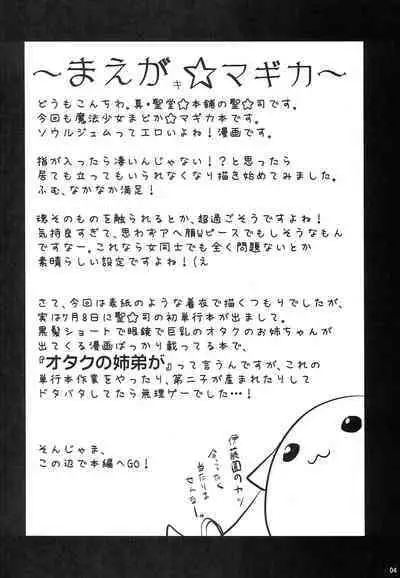 ～まえがキ☆マギカ～
どうもこんちわ。真・聖堂☆本舗の聖☆司です。
今回も魔法少女まどか☆マギカ本です。
ソウルジェムってエロいよね！漫画です。
指が入ったら凄いんじゃない！？と思ったら
居ても立ってもいられなくなり描き始めてみました。
ふむ、なかなか満足！
魂そのものを触られるとか、超過ごそうですよね！
気持良すぎて、思わずアヘ顔Wピースでもしそうなもん
ですなー。これなら女同士でも全く問題ないとか
素晴らしい設定ですよね！（え
さて、今回は表紙のような着衣で描くつもりでしたが、
実は7月8日に聖☆司の初単行本が出まして。
黒髪ショートで眼鏡で巨乳のオタクのお姉ちゃんが
出てくる漫画ばっかり載ってる本で、
『オタクの姉弟が』って言うんですが、これの
単行本作業をやったり、第二子が産まれたりして
ドタバタしてたら無理ゲーでした…！
そんじゃま、
この辺で本編へGO！
伊藤園のカツ
当たりは
せんなー。
04